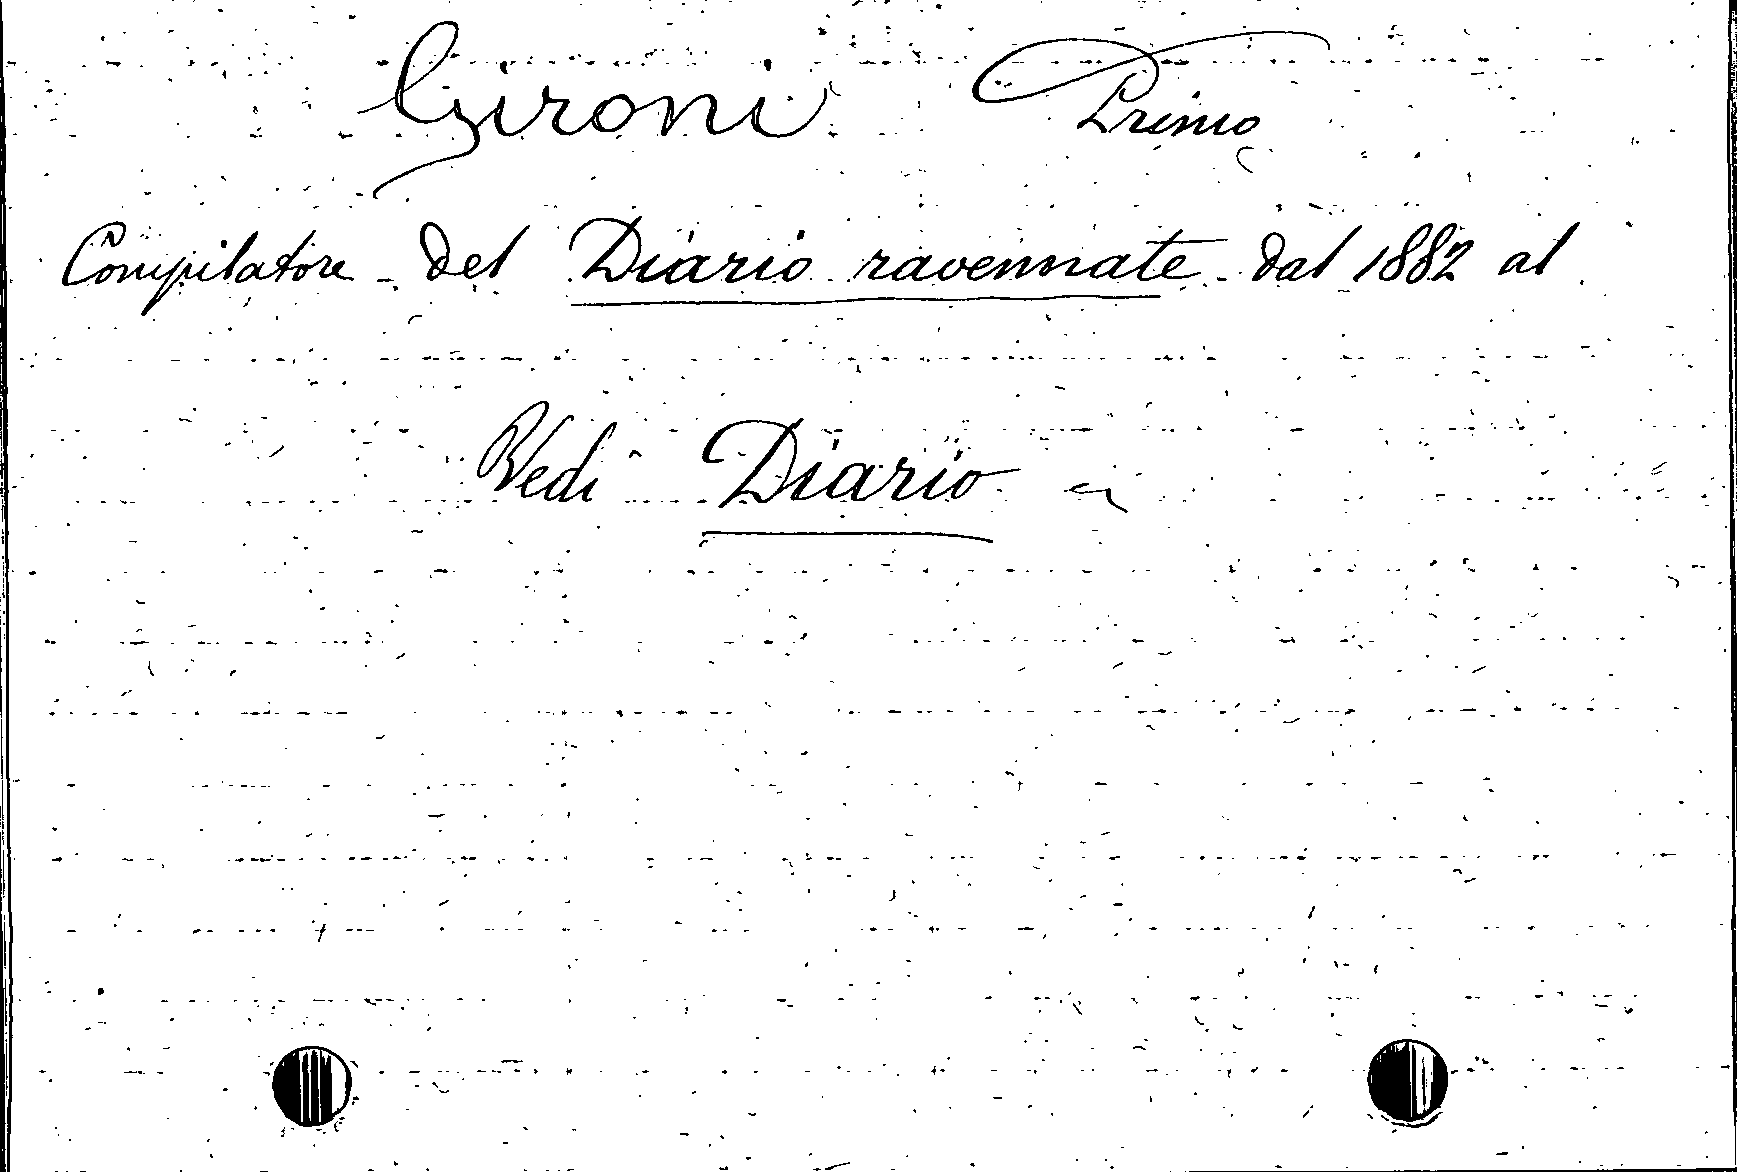 Gironi Primo
Compilatore del Diario ravennate dal 1882 al
Vedi Diario